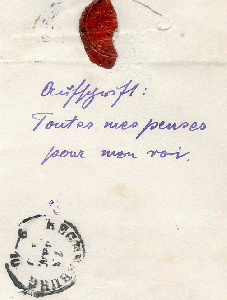 Aufschrift:
Toutes mes penses
pour mon roi.